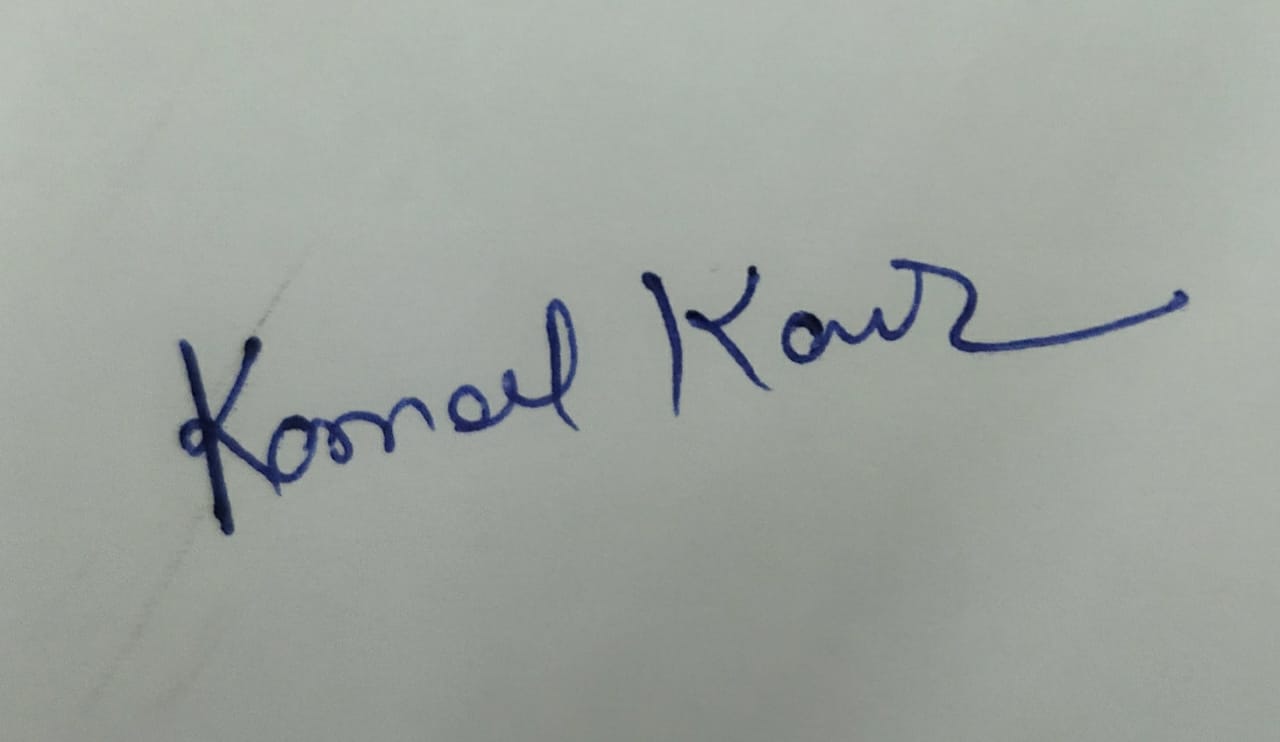 Komal Kaur